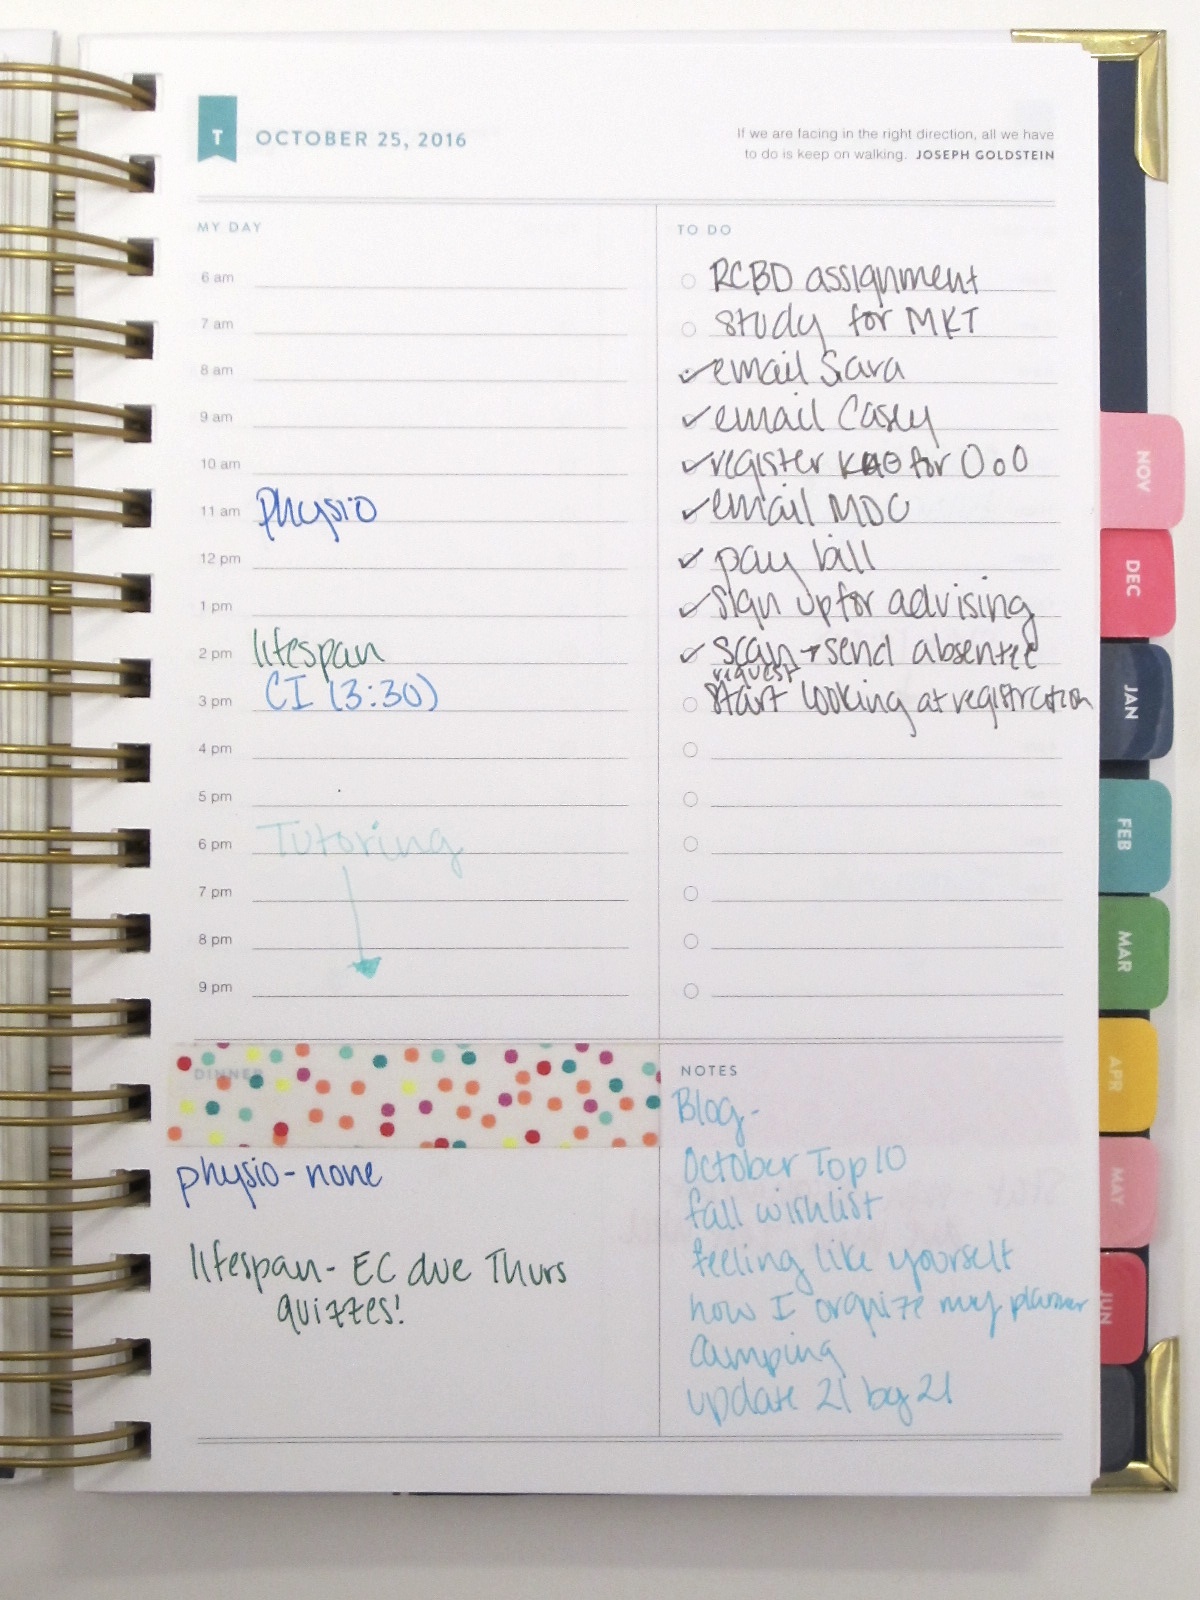 T OCTOBER 25, 2016
If we are facing in the right direction, all we have
to do is keep on walking. JOSEPH GOLDSTEIN
MY DAY
6 am
7 am
8 am
9 am
10 am
11 am Physio
12 pm
1 pm
2 pm lifespan
3 pm CI (3:30)
4 pm
5 pm
6 pm Tutoring
7 pm
8 pm
9 pm
TO DO
RCBD assignment
study for MKT
email Sara
email Casey
register KAO for OoO
email MDC
pay bill
sign up for advising
scan + send absentee
request
start looking at registration
DINNER
physio - none
lifespan - EC due Thurs
quizzes!
NOTES
Blog -
October Top 10
fall wishlist
feeling like yourself
how I orgnize my planner
Camping
update 21 by 21
NOV
DEC
JAN
FEB
MAR
APR
MAY
JUN